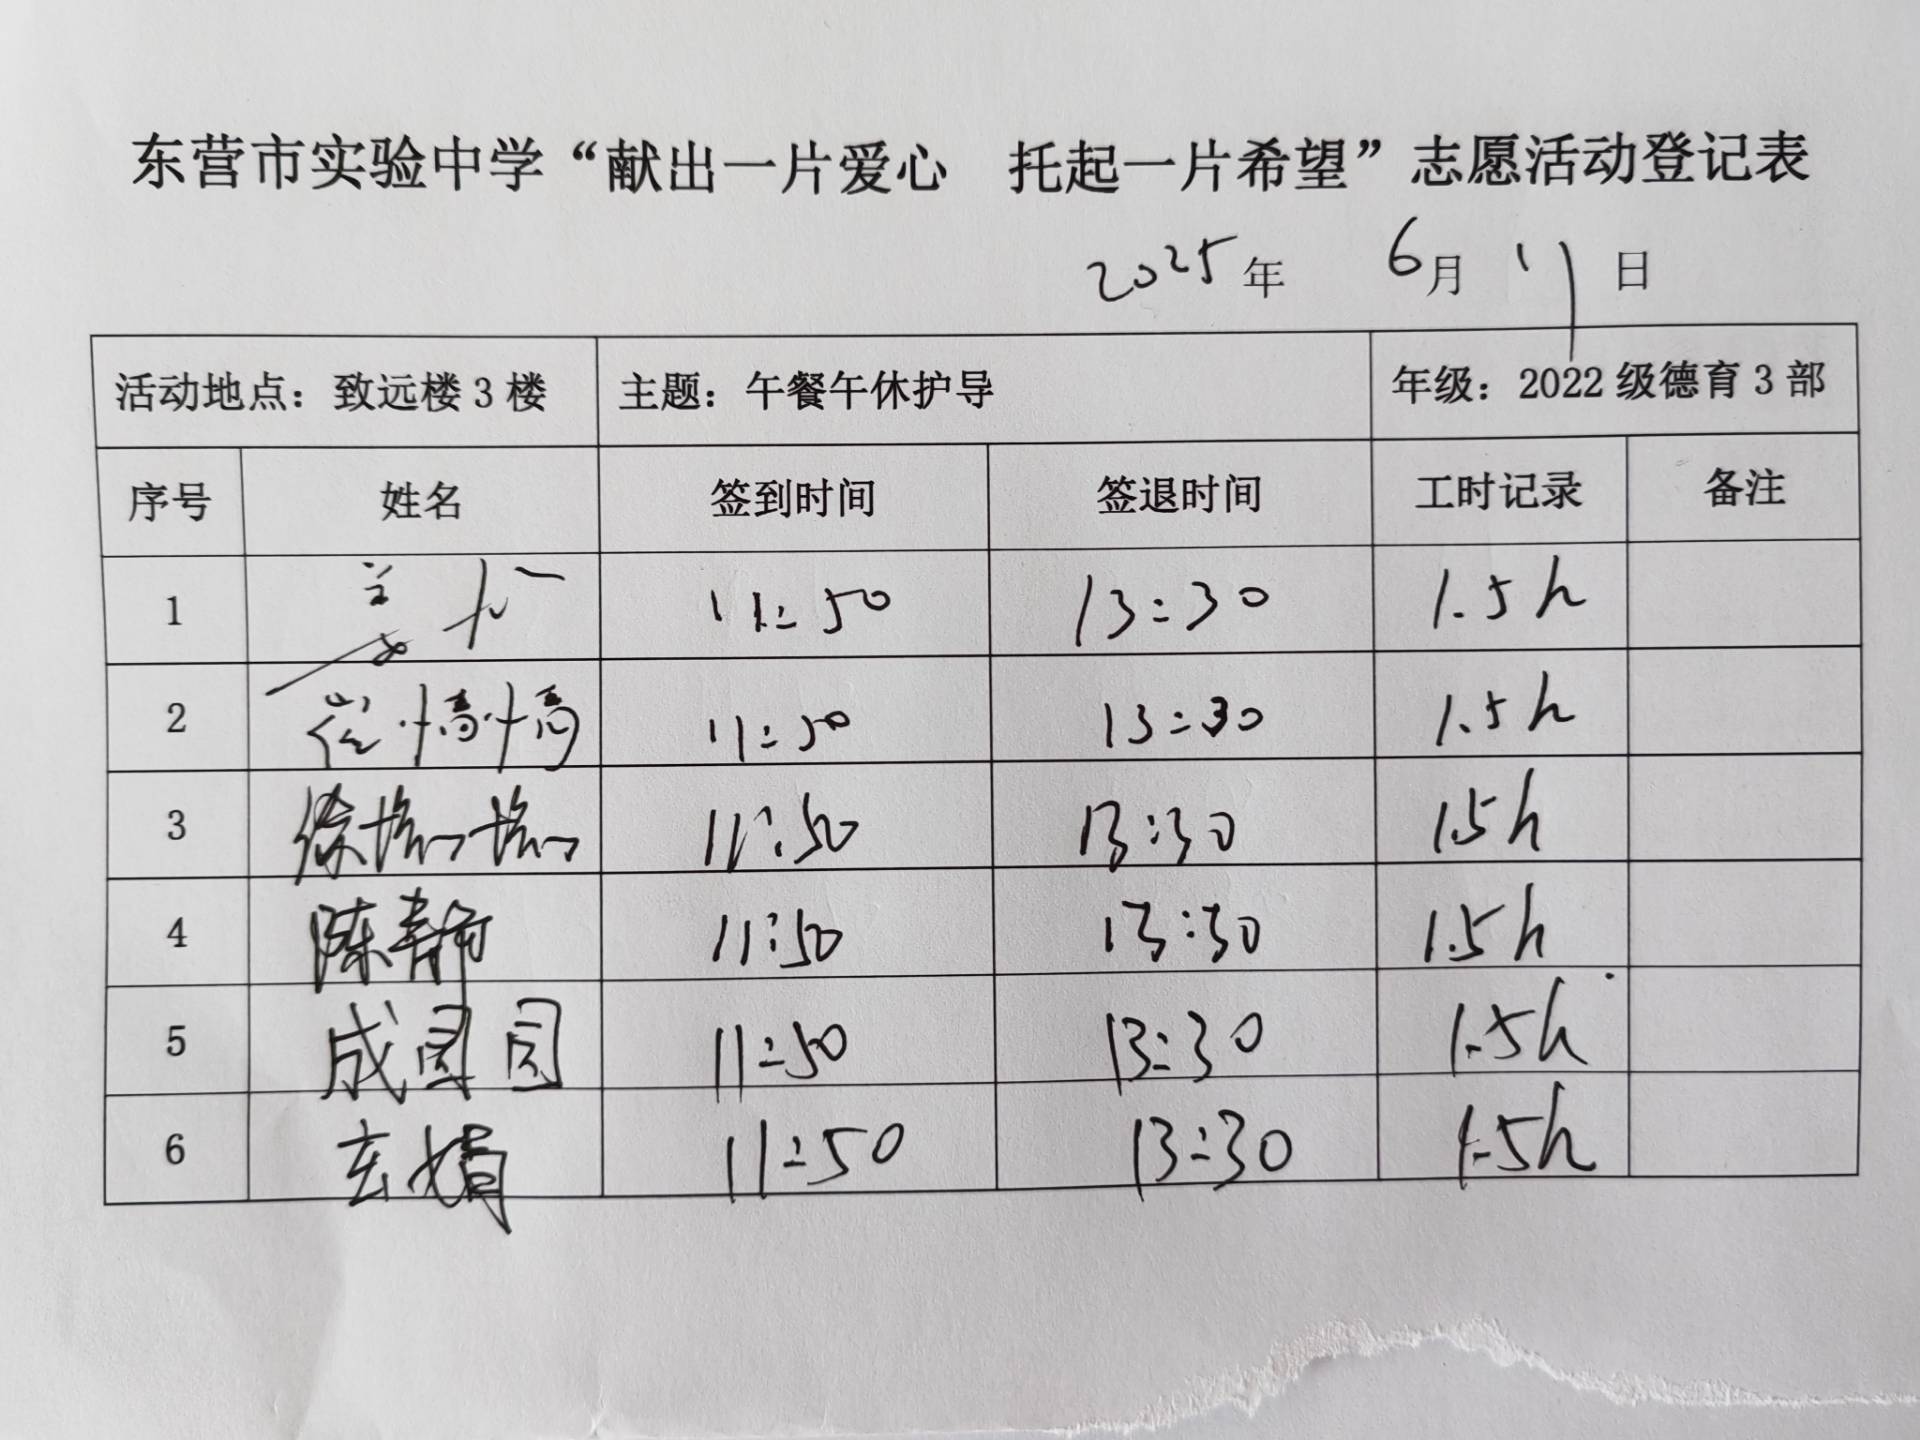 东营市实验中学“献出一片爱心 托起一片希望”志愿活动登记表
2025年 6月 11日
活动地点：致远楼3楼 主题：午餐午休护导 年级：2022级德育3部
序号 姓名 签到时间 签退时间 工时记录 备注
1 11:50 13:30 1.5h
2 崔 11:50 13:30 1.5h
3 徐 11:50 13:30 1.5h
4 陈静 11:50 13:30 1.5h
5 成圆圆 11:50 13:30 1.5h
6 玄婧 11:50 13:30 1.5h